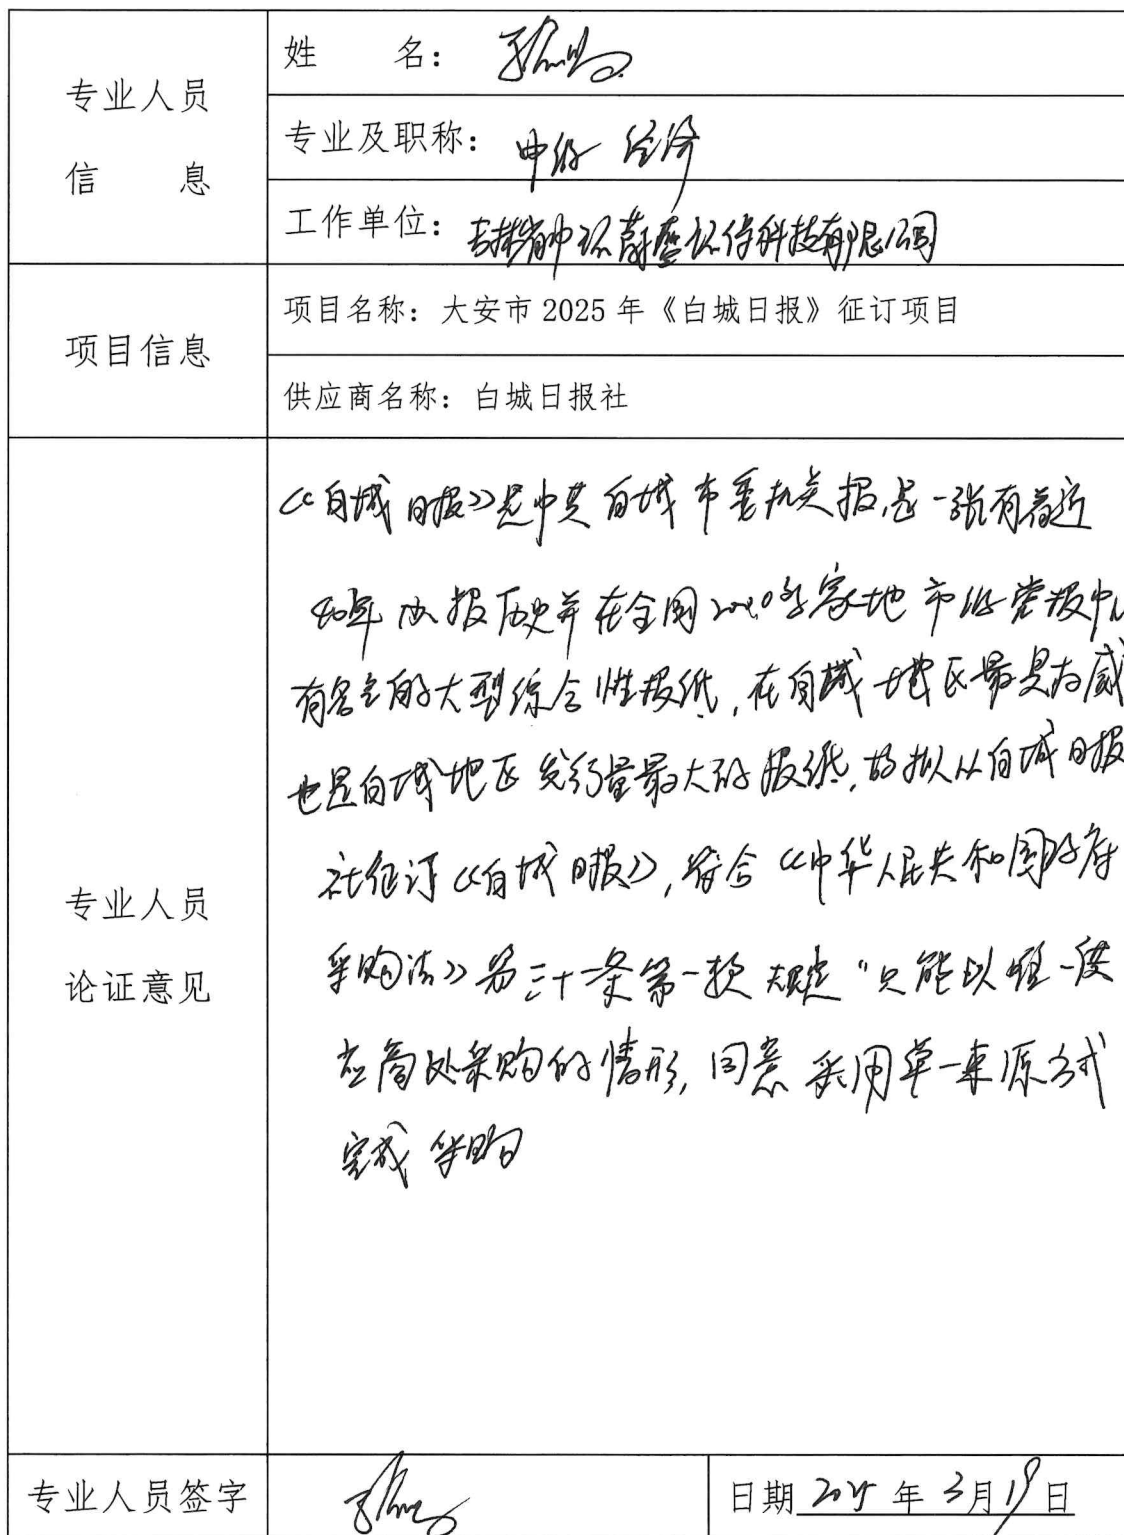 专业人员
信 息
姓 名：
专业及职称：中级 经济
工作单位：吉林省中环蔚蓝环保科技有限公司
项目信息
项目名称：大安市2025年《白城日报》征订项目
供应商名称：白城日报社
专业人员
论证意见
《白城日报》是中共白城市委机关报，是一张有着近
年办报历史并在全国 家地市级党报中
有名的大型综合性报纸，在白城地区最具权威
也是白城地区发行量最大的报纸，故拟从白城日报
社征订《白城日报》，符合《中华人民共和国政府
采购法》第三十一条第一款规定“只能以唯一供
应商处采购的情形，同意采用单一来源方式
完成采购
专业人员签字
日期 2025 年 3月19日